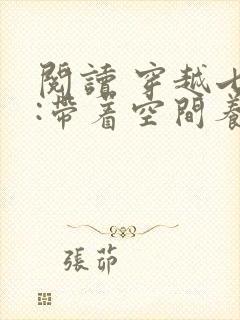 閱讀 穿越七
:帶着空間養
張茆